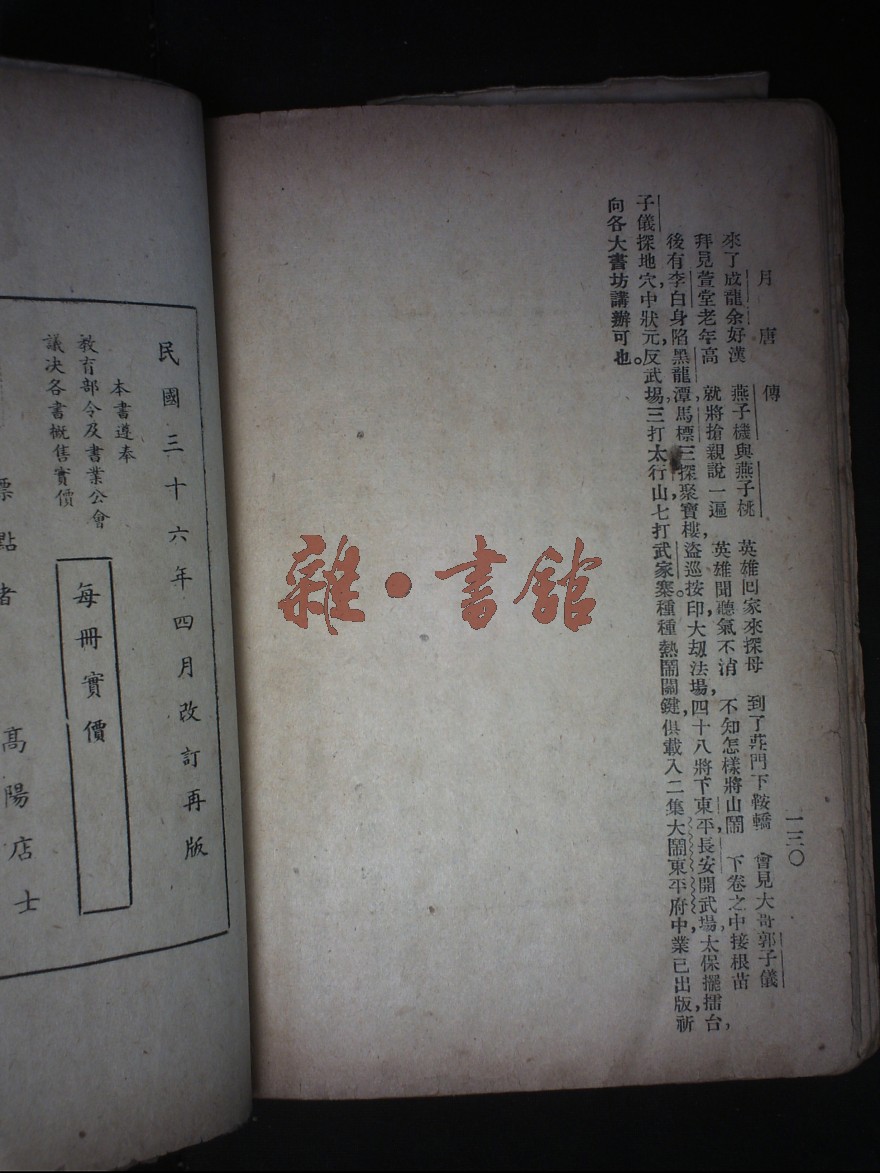 月唐傳
一三〇
來了成龍余好漢　燕子機與燕子桃　英雄回家來探母　到了莊門下鞍轎　會見大哥郭子儀
拜見萱堂老年高　就將搶親說一遍　英雄聞聽氣不消　不知怎樣將山鬧　下卷之中接根苗
後有李白身陷黑龍潭,馬標三探聚寶樓,盜巡按印大刧法場,四十八將下東平,長安開武場,太保擺擂台,
子儀探地穴,中狀元,反武場,三打太行山,七打武家寨。種種熱鬧關鍵,俱載入二集大鬧東平府中,業已出版,祈
向各大書坊講辦可也。
雜·書館
民國三十六年四月改訂再版
本書遵奉
教育部令及書業公會
議决各書概售實價
每冊實價
標點者　高陽店士